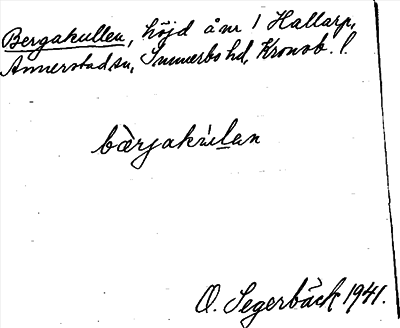 Bergakullen, höjd å nr 1 Hallarp,
Annerstad sn, Sunnerbo hd, Kronob. l.
bärjakulan
O. Segerbäck 1941.